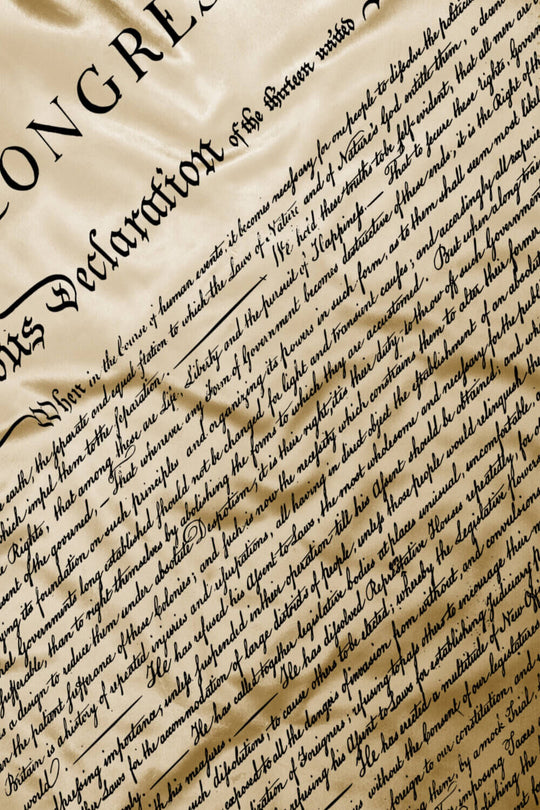 CONGRES
ous Declaration of the thirteen united
When in the Course of human events, it becomes necessary for one people to dissolve the political
earth, the separate and equal station to which the Laws of Nature and of Nature's God entitle them, a decent
which impel them to the separation. We hold these truths to be self-evident, that all men are
Rights, that among these are Life, Liberty and the pursuit of Happiness.— That to secure these rights, Govern
ent of the governed, — That whenever any Form of Government becomes destructive of these ends, it is the Right of the
ying its foundation on such principles and organizing its powers in such form, as to them shall seem most likel
Governments long established should not be changed for light and transient causes; and accordingly all experie
sufferable, than to right themselves by abolishing the forms to which they are accustomed. But when a long trai
a design to reduce them under absolute Despotism, it is their right, it is their duty, to throw off such Government
n the patient sufferance of these Colonies; and such is now the necessity which constrains them to alter their former
Britain is a history of repeated injuries and usurpations, all having in direct object the establishment of an absolut
world. He has refused his Assent to Laws, the most wholesome and necessary for the publi
pressing importance, unless suspended in their operation till his Assent should be obtained; and wh
other Laws for the accommodation of large districts of people, unless those people would relinquish
He has called together legislative bodies at places unusual, uncomfortable, a
with his measures. He has dissolved Representative Houses repeatedly, for
such dissolutions, to cause others to be elected; whereby the Legislative Powers
exposed to all the dangers of invasion from without, and convulsion
ization of Foreigners; refusing to pass others to encourage their
refusing his Assent to Laws for establishing Judiciary
He has erected a multitude of New Of
without the Consent of our legislatures
foreign to our constitution, and
them, by a mock Trial,
imposing Taxes